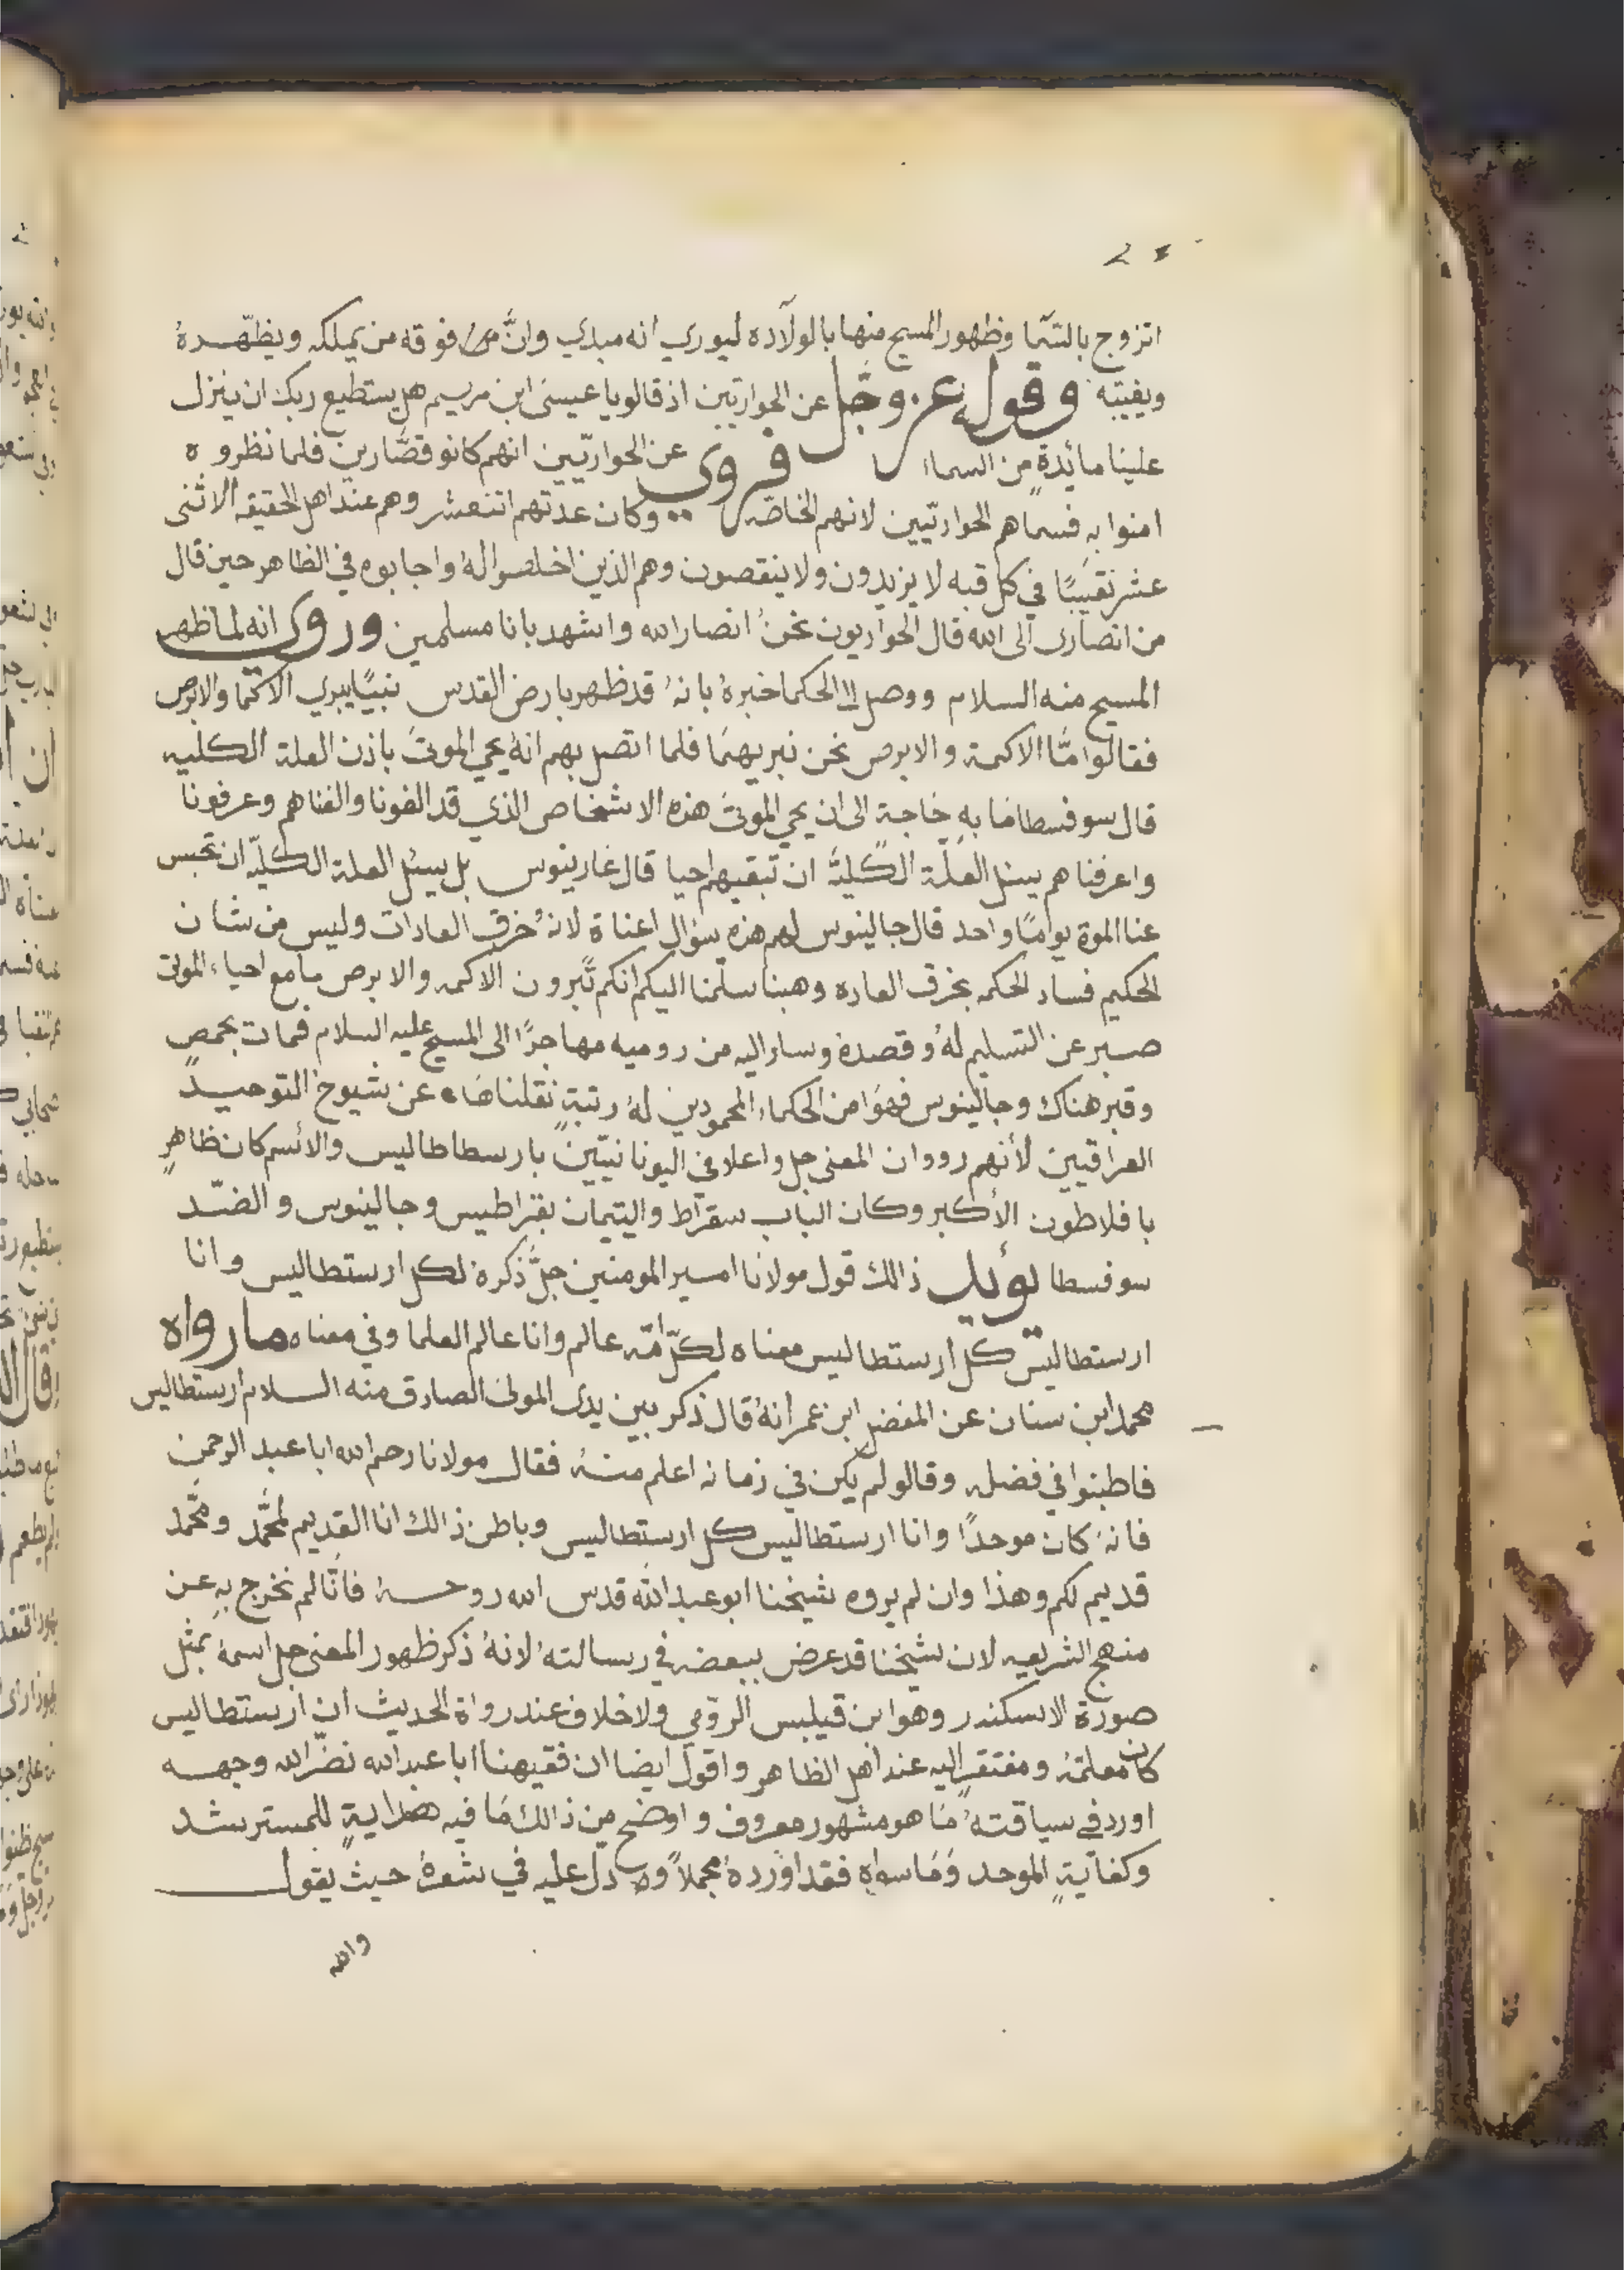 اتزوج بالسما وظهور المسيح منها بالولاده ليوري انه مبدي وانَّ من فوقه من يملكه ويظهره
ويغيبه وقوله عز وجل عن الحواريين اذ قالو يا عيسى ابن مريم هل يستطيع ربك ان ينزل
علينا مائدةٍ من السما فروى عن الحواريّين انهم كانو قصّارين فلما نظروه
امنوا به فسماهم الحواريّين لانهم الخاصه وكان عدتهم اتنعشر وهم عند اهل الحقيقه الاثنى
عشر نقيبًا في كل قبه لا يزيدون ولا ينقصون وهم الذين اخلصوا لهُ واجابوه في الظاهر حين قال
من انصارى الى الله قال الحواريون نحنُ انصار الله واشهد بانا مسلمين وروى انه لما ظهر
المسيح منه السلام ووصل الى الحكما خبرهُ بانهُ قد ظهر بارض القدس نبيًا يبري الاكما والابرص
فقالوا امّا الاكمة والابرص نحن نبريهمَا فلما اتصل بهم انهُ يحي الموتَ باذن العلة الكليه
قال سوفسطا مَا بهِ حَاجة الى ان يحي الموتَ هذه الاشخاص الذي قد الفونا والفناهم وعرفونا
واعرفناهم يسئل العلّة الكليَّة ان تبقيهم احيا قال غارينوس بل يسئل العلة الكليّه ان تحبس
عنا الموة يوامًا واحد قال جالينوس لهم هذه سؤال اعناة لانهُ خرق العادات وليس من شان
الحكيم فساد الحكمه بخرق العاده وهبنا سلّمنا اليكم انكم تُبرون الاكمه والابرص ما مع احياء الموتى
صبر عن التسليم لهُ وقصدهُ وسار اليه من روميه مهاجرًا الى المسيح عليه السلام فمات بحمصٍ
وقبر هناك وجالينوس فهوَ من الحكماء المحمودين لهُ رتبةٍ نقلناهَا عن شيوخ التوحيد
العراقيين لأنهم رووان المعنى جل واعلا في اليونانيّين بارسطاطاليس والائسم كان ظاهرٍ
بافلاطون الأكبر وكان الباب سقراط واليتيمان بقراطيس وجالينوس والضّد
سوفسطا يؤيد ذالك قول مولانا امير المومنين جلَّ ذكرهُ لكل ارستطاليس وانا
ارستطاليس كل ارستطاليس معناه لكلّ امّه عالم وانا عالم العلما وفي معناه ما رواه
محمد ابن سنان عن المفضل ابن عمر انهُ قال ذكر بين يدى المولى الصادق منه السلام ارستطاليس
فاطنبوا في فضله وقالو لم يكن في زمانه اعلم منهُ فقال مولانا رحم الله ابا عبد الرحمن
فانهُ كان موحدًا وانا ارستطاليس كل ارستطاليس وباطن ذالك انا القديم لمحَّمد ومحَّمد
قديم لكم وهذا وان لم يروه شيخنا ابو عبد الله قدس الله روحهُ فانّا لم نخرج بهِ عن
منهج الشريعه لان شيخنا قد عرض ببعضه في رسالتهُ لانهُ ذكر ظهور المعنى جل اسمهُ بمثل
صورة الاسكندر وهو ابن قيلبس الرومي ولا خلاف عند رواة الحديث ان ارستطاليس
كان معلمهُ ومفتقر اليه عند اهل الظاهر واقول ايضا ان فقيهنا ابا عبد الله نضّر الله وجهه
اورد في سياقتهُ مَا هو مشهور معروف واوضح من ذالك مَا فيه هدايةٍ للمسترشد
وكفايةٍ الموحد وَمَا سواهِ فقد اوردهُ مجملاً ودل عليه في شعرهُ حيث يقول
والله